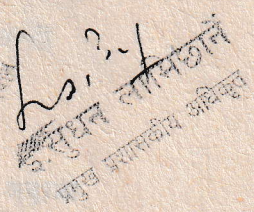 इ. सुधन लामिछाने
प्रमुख प्रशासकीय अधिकृत